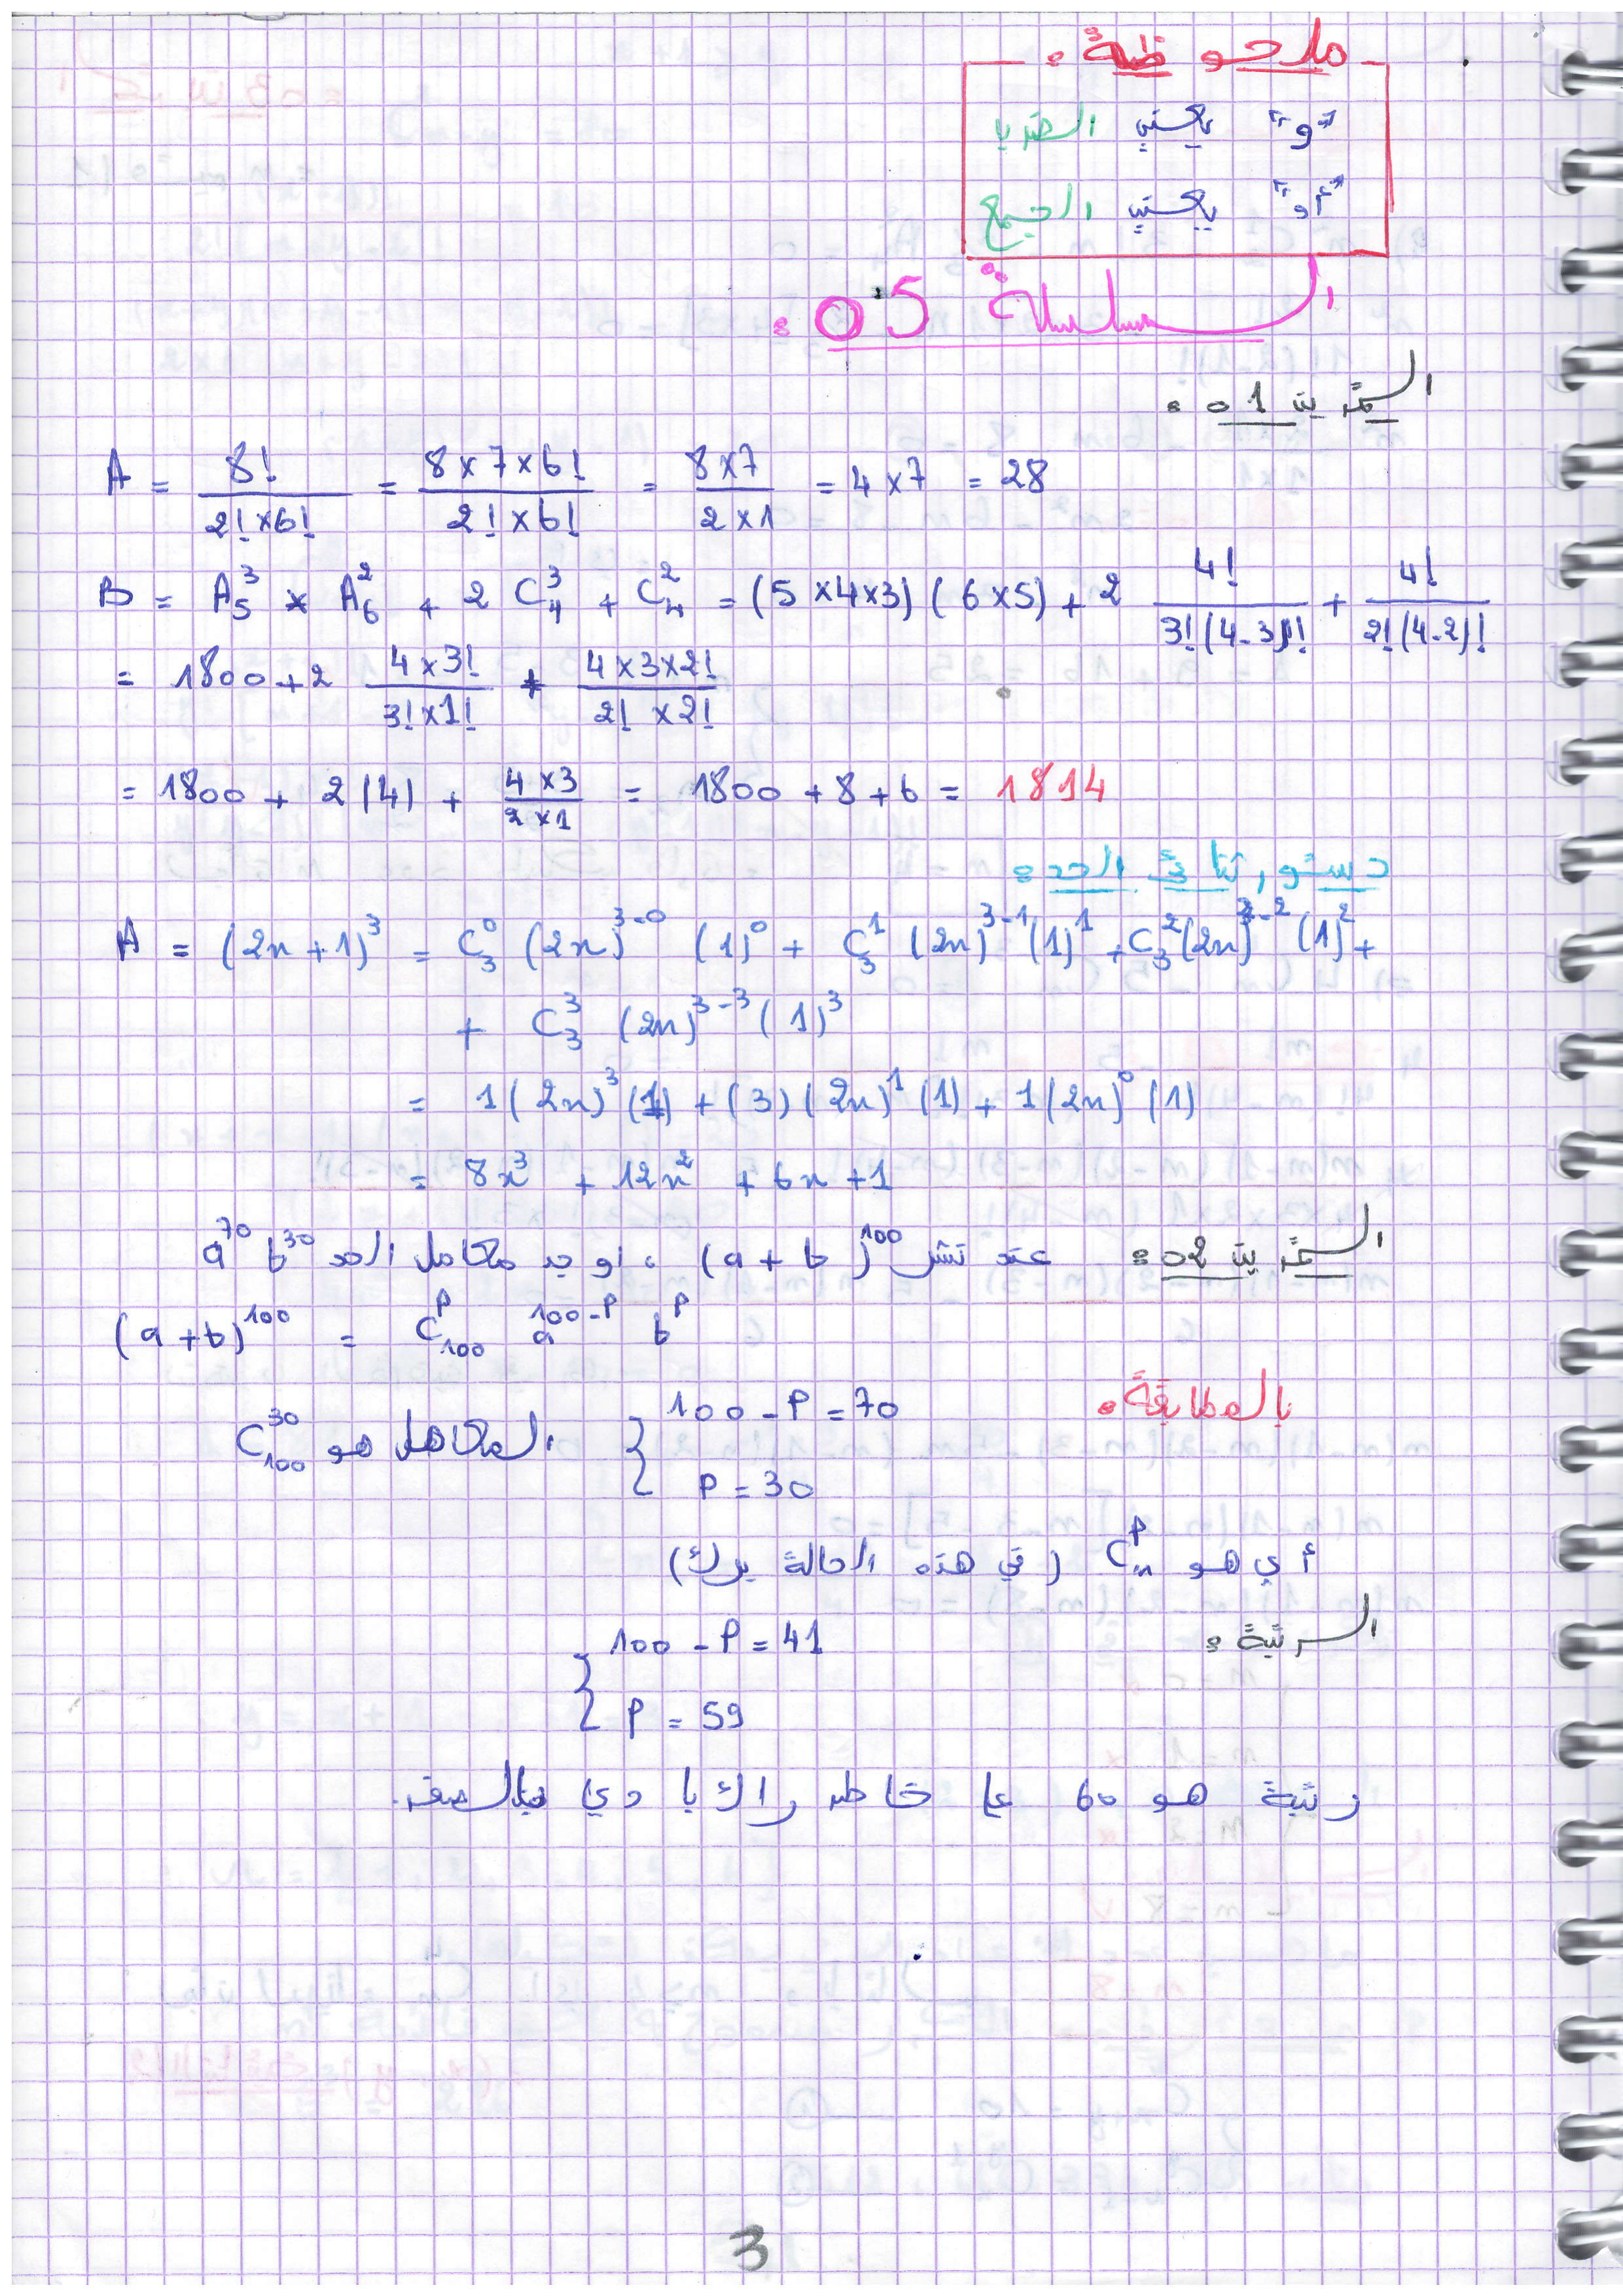 ملاحوظة :
"و" يعني الضرب
"أو" يعني الجمع
السلسلة 05 :
التمرين 01 :
A = 8! / (2! × 6!) = (8 × 7 × 6!) / (2! × 6!) = (8 × 7) / (2 × 1) = 4 × 7 = 28
B = A₅³ × A₆² + 2 C₄³ + C₄² = (5 × 4 × 3) (6 × 5) + 2 4! / (3! (4-3)!) + 4! / (2! (4-2)!)
= 1800 + 2 (4 × 3!) / (3! × 1!) + (4 × 3 × 2!) / (2! × 2!)
= 1800 + 2(4) + (4 × 3) / (2 × 1) = 1800 + 8 + 6 = 1814
دستور ثنائي الحد :
A = (2x + 1)³ = C₃⁰ (2x)³⁻⁰ (1)⁰ + C₃¹ (2x)³⁻¹ (1)¹ + C₃² (2x)³⁻² (1)² +
+ C₃³ (2x)³⁻³ (1)³
= 1 (2x)³ (1) + (3) (2x)¹ (1) + 1 (2x)⁰ (1)
= 8x³ + 12x² + 6x + 1
التمرين 02 : عند نشر (a + b)¹⁰⁰ ، اوجد معامل الحد a⁷⁰ b³⁰
(a + b)¹⁰⁰ = C₁₀₀ᴾ a¹⁰⁰⁻ᴾ bᴾ
بالمطابقة : { 100 - P = 70
P = 30 المعامل هو C₁₀₀³⁰
أي هو Cₙᴾ (في هذه الحالة برك)
الرتبة : { 100 - P = 41
P = 59
رتبة هو 60 على خاطر راك بادي بالصفر.
3